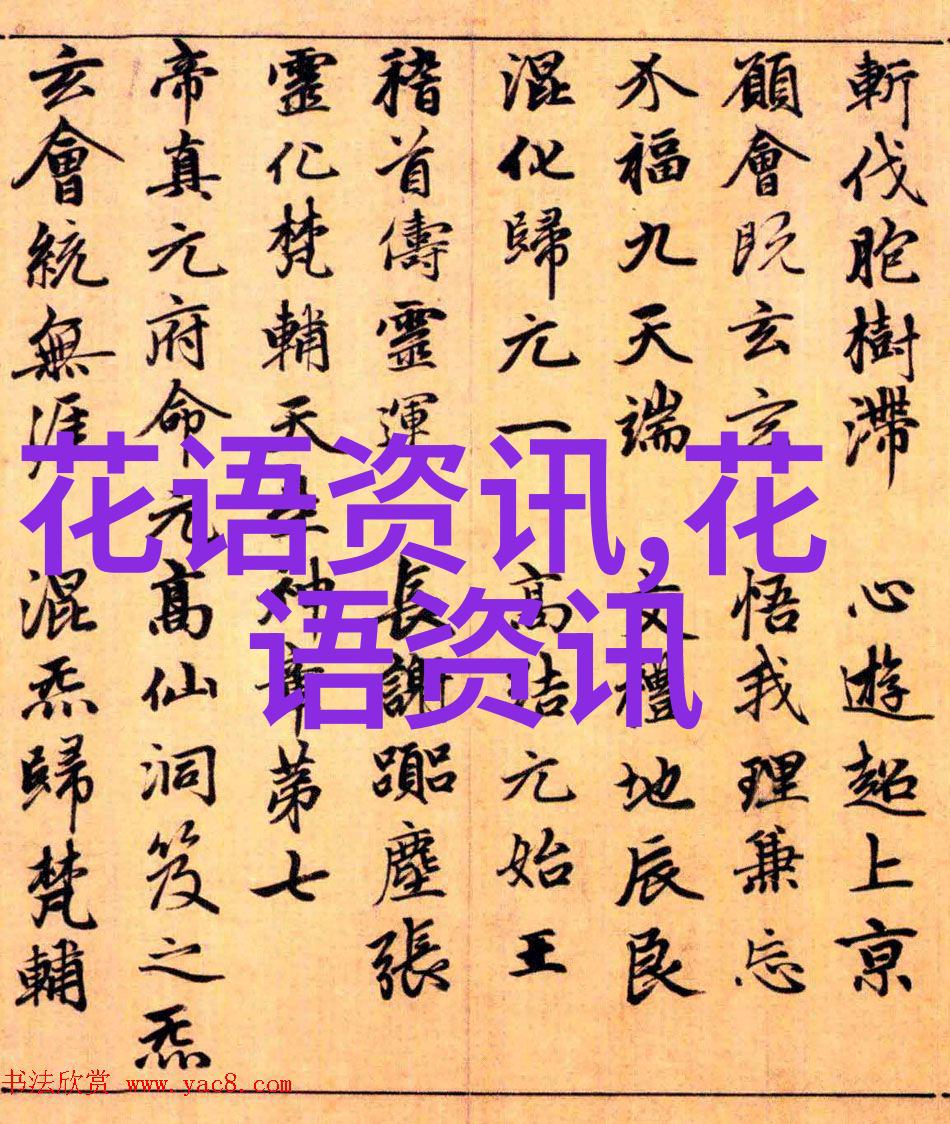 斬伐胞樹滯 心遊超上京
願會既玄玄 悟我理兼忘
福九天端 文禮地辰良
混化歸元一 高結元始王
稽首儔靈運 長謝囂塵張
靈化梵輔天 神章第七
帝真元府命元高仙洞笈之炁
玄會統無涯 混炁歸梵輔
花语资讯,花
语资讯
书法欣赏 www.yac8.com